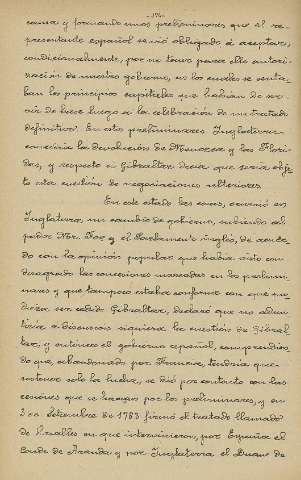 -176-
cana y formando unos preliminares que el re-
presentante español se vió obligado á aceptar,
condicionalmente, por no tener para ello autori-
zación de nuestro gobierno, en los cuales se senta-
ban los principios capitales que habían de ser-
vir de base luego a la celebración de un tratado
definitivo. En estos preliminares Inglaterra
concedía la devolución de Menorca y las Flori-
das, y respecto a Gibraltar decía que sería obje-
to esta cuestión de negociaciones ulteriores.
En este estado las cosas, ocurrió en
Inglaterra un cambio de gobierno, subiendo al
poder Mr. Fox y el Parlamento inglés, de acuer-
do con la opinión popular que había visto con
desagrado las concesiones marcadas en los prelimi-
nares y que tampoco estaba conforme con que pu-
diera ser cedido Gibraltar, declaró que no admi-
tiría a discusión siquiera la cuestión de Gibral-
tar, y entonces el gobierno español, comprendien-
do que, abandonado por Francia, tendría que
sostener solo la lucha, se dió por contento con las
cesiones que se hacían por los preliminares, y en
3 de Setiembre de 1783 firmó el tratado llamado
de Versalles en que intervinieron, por España el
Conde de Aranda y por Inglaterra el Duque de